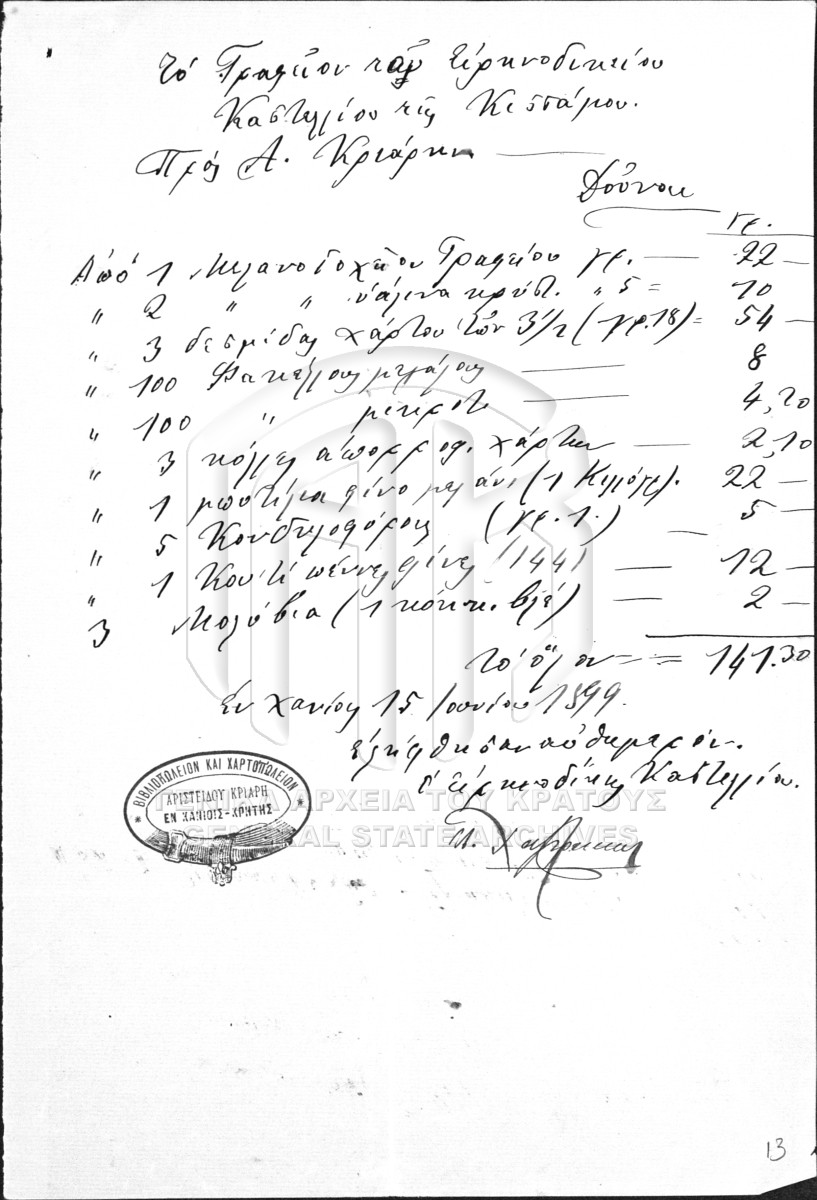 Τό Γραφεῖον τοῦ Εἰρηνοδικείου
Καστελλίου τῆς Κισσάμου.
Πρός Α. Κριάρην
Δοῦναι
γρ.
Ἀπό 1 Μελανοδοχεῖον Γραφείου γρ. — 22 —
〃 2 〃 〃 ὑάλινα κρύστ. 〃 5 = 10
〃 3 δεσμίδας χάρτου τῶν 3 1/2 (γρ. 18) = 54 —
〃 100 Φακέλλους μεγάλους — 8
〃 100 〃 — 4,20
〃 3 κόλλες ἀπορροφ. χάρτην — 2,10
〃 1 μποτίλια φίνο μελάνι (1 Κιλόγρ). 22 —
〃 5 Κονδυλοφόρους (γρ. 1.) — 5 —
〃 1 Κουτί πέννες φίνες (144) — 12 —
3 Μολύβια (1 κόκκ. βλέ) — 2 —
τό ὅλον — = 141.30
Ἐν Χανίοις 15 Ἰουνίου 1899.
Ἐλήφθησαν αὐθημερόν.
Ὁ Εἰρηνοδίκης Καστελλίου.
ΒΙΒΛΙΟΠΩΛΕΙΟΝ ΚΑΙ ΧΑΡΤΟΠΩΛΕΙΟΝ
ΑΡΙΣΤΕΙΔΟΥ ΚΡΙΑΡΗ
ΕΝ ΧΑΝΙΟΙΣ-ΚΡΗΤΗΣ
ΓΕΝΙΚΑ ΑΡΧΕΙΑ ΤΟΥ ΚΡΑΤΟΥΣ
GENERAL STATE ARCHIVES
13